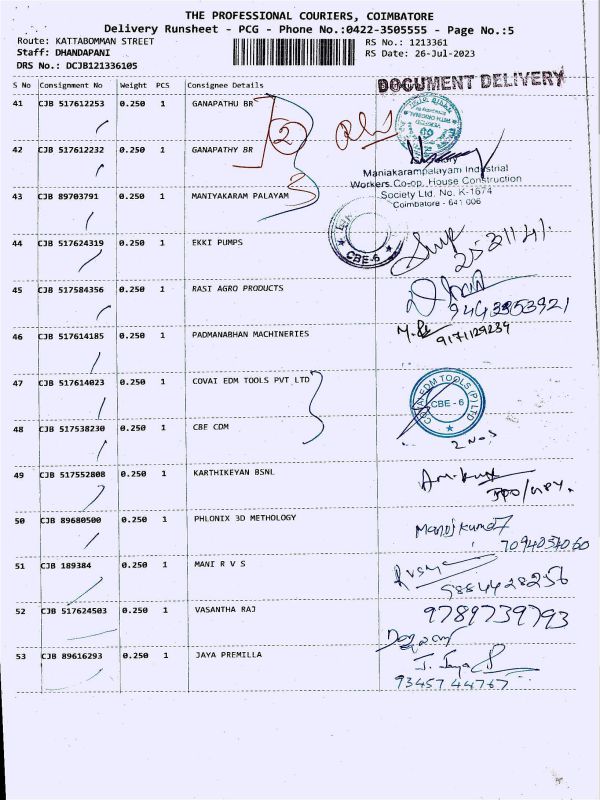 THE PROFESSIONAL COURIERS, COIMBATORE
Delivery Runsheet - PCG - Phone No.:0422-3505555 - Page No.:5
Route: KATTABOMMAN STREET
Staff: DHANDAPANI
DRS No.: DCJB121336105
RS No.: 1213361
RS Date: 26-Jul-2023
S No Consignment No Weight PCS Consignee Details
DOCUMENT DELIVERY
41 CJB 517612253 0.250 1 GANAPATHU BR
2
42 CJB 517612232 0.250 1 GANAPATHY BR
Maniakarampalayam Industrial
Workers Co-op. House Construction
Society Ltd. No. K-1674
Coimbatore - 641 006
43 CJB 89703791 0.250 1 MANIYAKARAM PALAYAM
3
CBE-6
44 CJB 517624319 0.250 1 EKKI PUMPS
45 CJB 517584356 0.250 1 RASI AGRO PRODUCTS
9443353921
46 CJB 517614185 0.250 1 PADMANABHAN MACHINERIES
9171129234
47 CJB 517614023 0.250 1 COVAI EDM TOOLS PVT LTD
COVAI EDM TOOLS (P) LTD
CBE - 6
48 CJB 517538230 0.250 1 CBE CDM
2 Nos
49 CJB 517552808 0.250 1 KARTHIKEYAN BSNL
50 CJB 89680500 0.250 1 PHLONIX 3D METHOLOGY
Manojkumar
51 CJB 189384 0.250 1 MANI R V S
9884428256
52 CJB 517624503 0.250 1 VASANTHA RAJ
9789739793
53 CJB 89616293 0.250 1 JAYA PREMILLA
J. Jaya
93457 44767